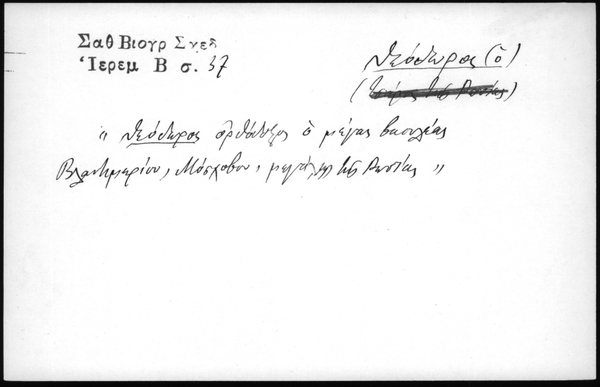 Σαθ Βιογρ Σχεδ
Ἱερεμ Β σ. 37
Θεόδωρος (ὁ)
(Τσάρος τῆς Ρωσίας)
" Θεόδωρος ὀρθόδοξος ὁ μέγας βασιλέας
Βλαντιμηρίου, Μόσχοβου, μεγάλης τῆς Ρωσίας "